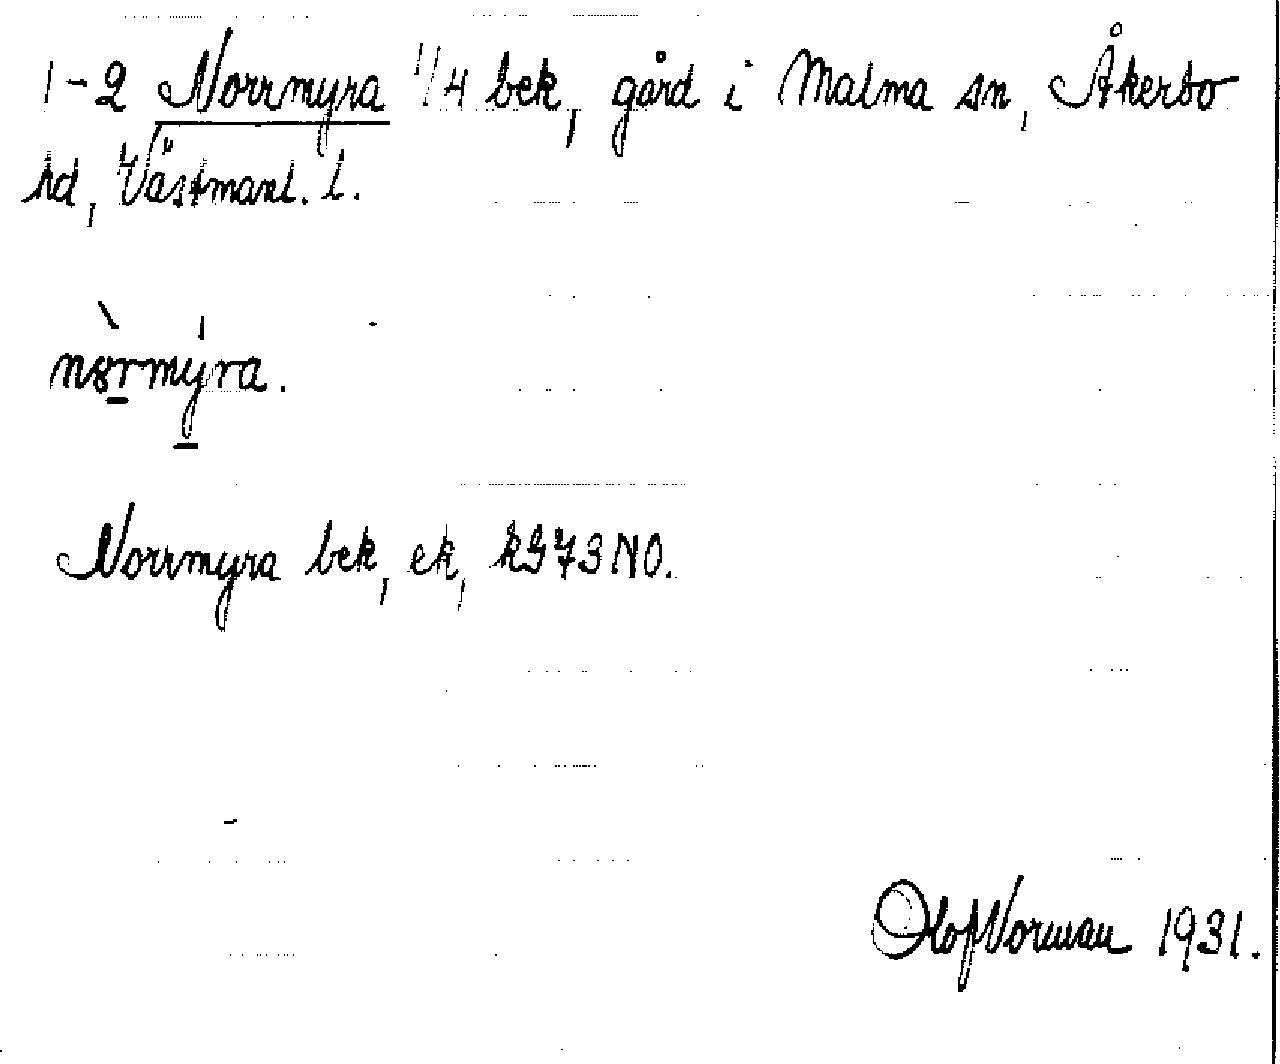 1-2 Norrmyra 1/4 bek, gård i Malma sn, Åkerbo
hd, Västmanl. l.
nørmy̍ra.
Norrmyra bek, ek, kG73NO.
Olof Norman 1931.